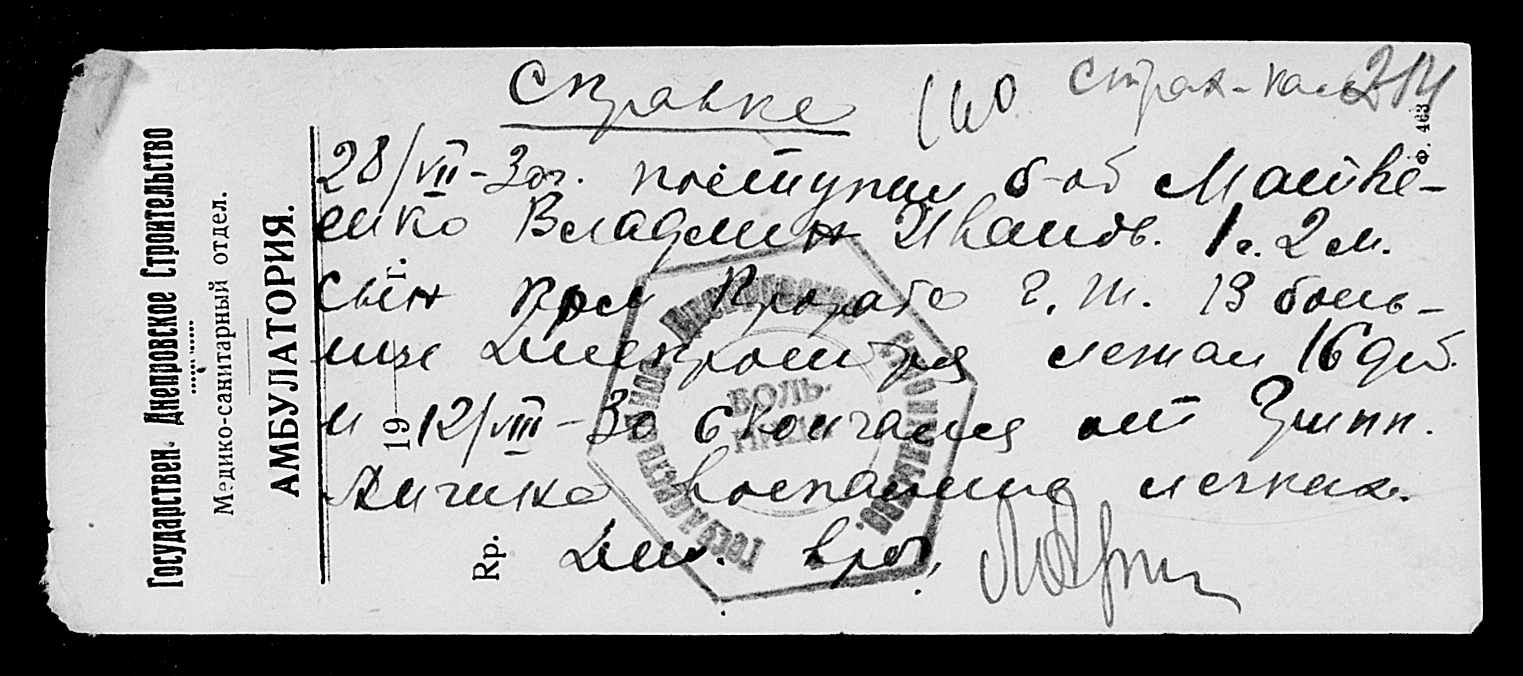 Государствен. Днепровское Строительство
Медико-санитарный отдел.
АМБУЛАТОРИЯ.
Справка
Страх-кас 214
Ф. 463
28/VII-30г. поступил б-об Матве-
енко Владмин Иванов. 1 г. 2 м.
сын г. в боль-
ницу Днепростря лежал 16 дней
и 12/VIII-30 скончался от Грипп.
воспаление легких.
19 г.
Rp.
Деж. врач,
БОЛЬ-
НИЦА